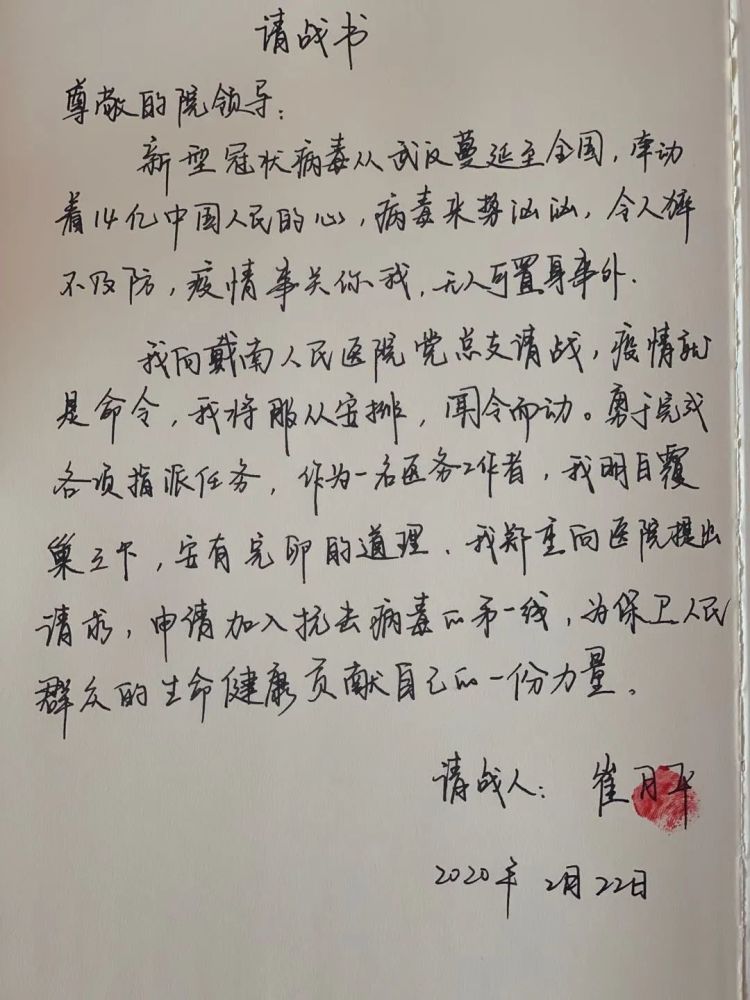 请战书
尊敬的院领导:
新型冠状病毒从武汉蔓延至全国,牵动
着14亿中国人民的心,病毒来势汹汹,令人猝
不及防,疫情事关你我,无人可置身事外.
我向戴南人民医院党总支请战,疫情就
是命令,我将服从安排,闻令而动。勇于完成
各项指派任务,作为一名医务工作者,我明白覆
巢之下,安有完卵的道理、我郑重向医院提出
请求,申请加入抗击病毒的第一线,为保卫人民
群众的生命健康贡献自己的一份力量。
请战人: 崔月
2020年2月22日